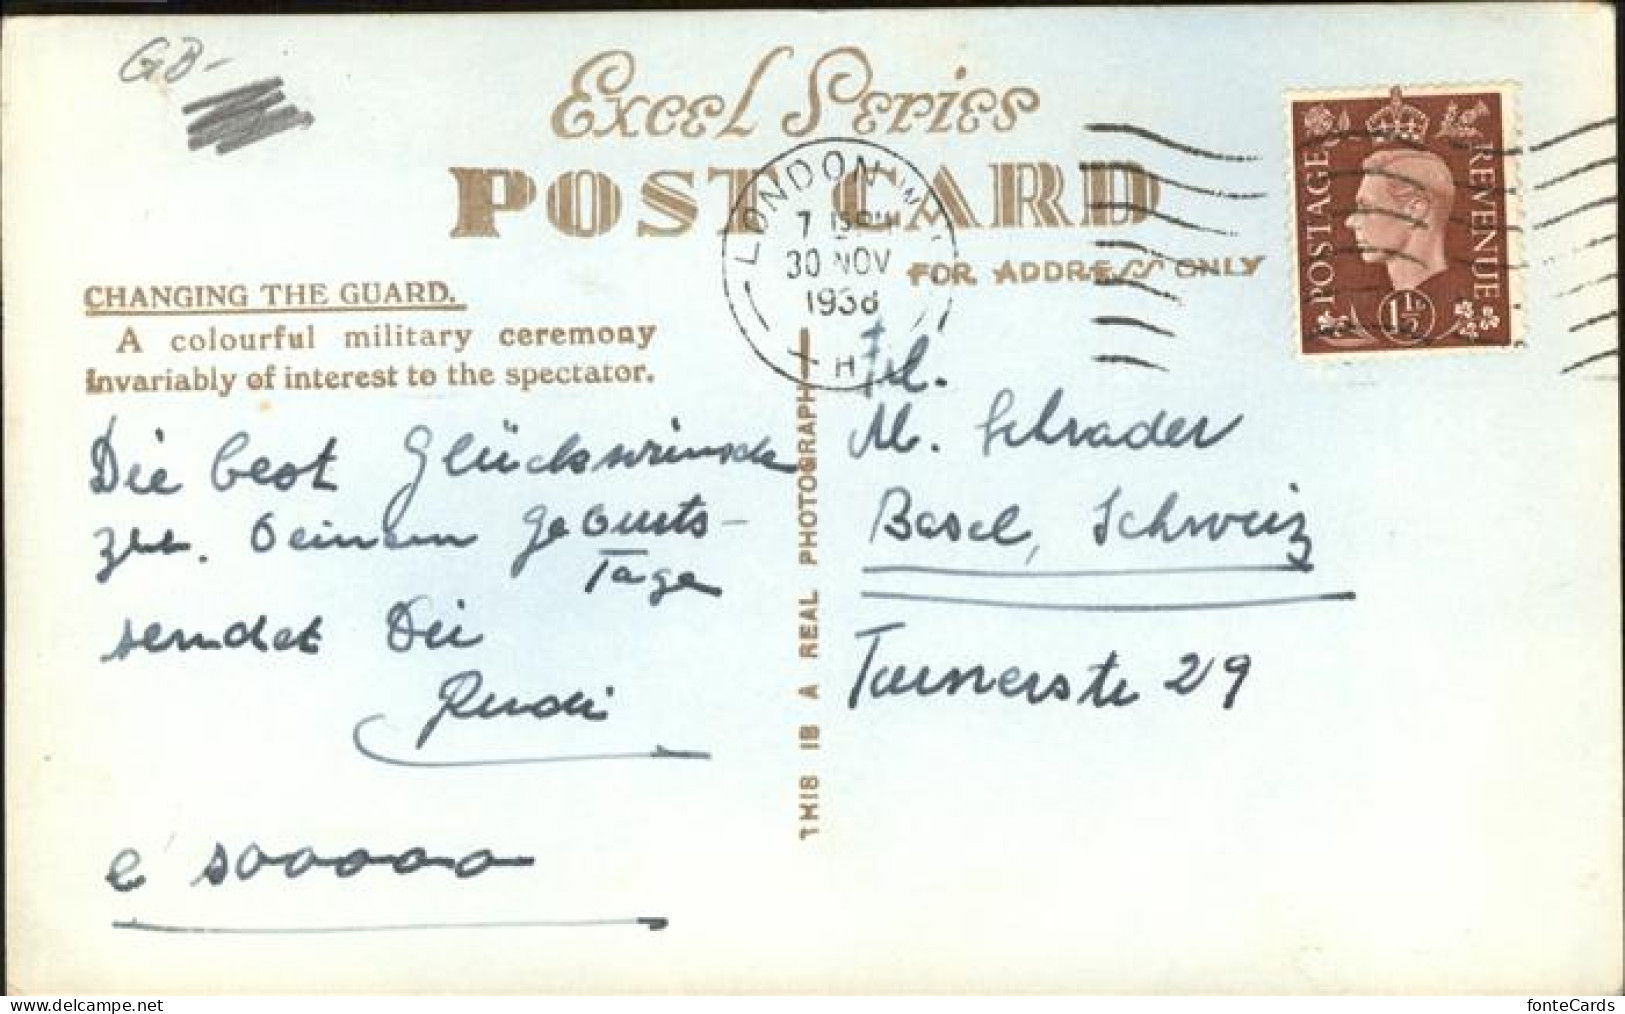 GB-
Excel Series
POST CARD
FOR ADDRESS ONLY
LONDON W
7 15 PM
30 NOV
1938
H
POSTAGE
REVENUE
1½D
CHANGING THE GUARD.
A colourful military ceremony
invariably of interest to the spectator.
Die best Glückwünsche
Deinem Geburts-
Tage
sendet Dir
Rudi
e sooooo
THIS IS A REAL PHOTOGRAPH
Frl.
M. Schrader
Basel, Schweiz
29
delcampe.net
fonteCards